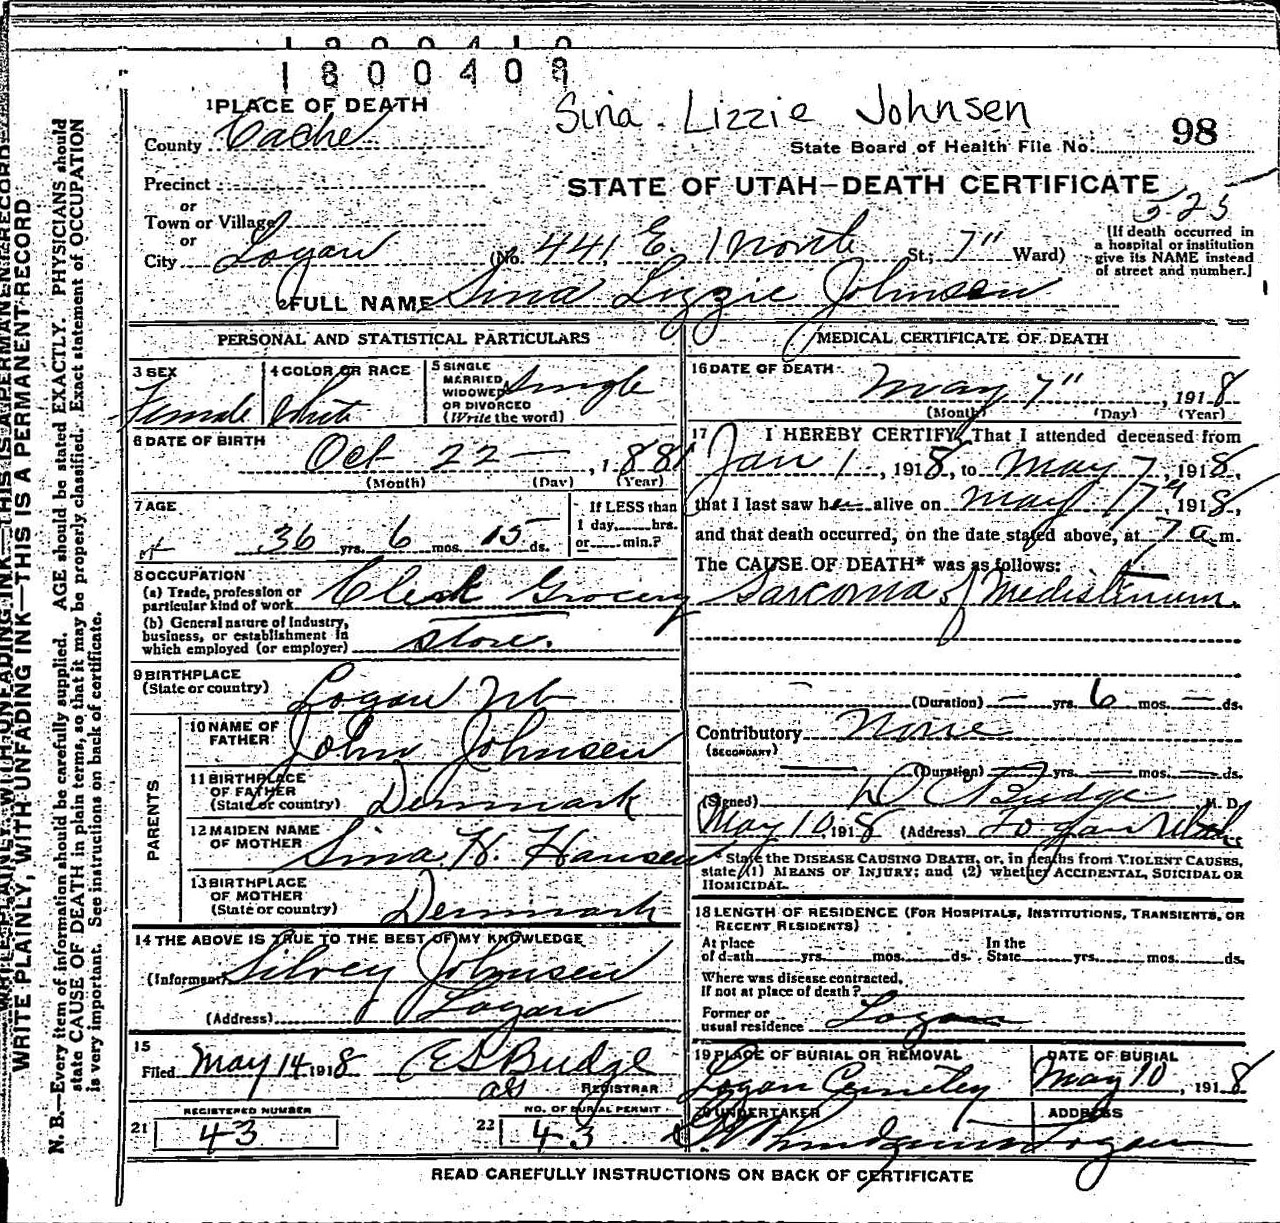 1800409
1 PLACE OF DEATH
Sina Lizzie Johnsen
County Cache
State Board of Health File No. 98
Precinct
STATE OF UTAH—DEATH CERTIFICATE
or
525
Town or Village
or
City Logan (No. 441 E. 1 North St.; 7" Ward)
[If death occurred in
a hospital or institution
give its NAME instead
of street and number.]
2 FULL NAME Sina Lizzie Johnsen
PERSONAL AND STATISTICAL PARTICULARS
3 SEX
Female
4 COLOR OR RACE
White
5 SINGLE
MARRIED
WIDOWED
OR DIVORCED
(Write the word)
Single
6 DATE OF BIRTH
Oct 22 —, 1881
(Month) (Day) (Year)
7 AGE
36 yrs. 6 mos. 15 ds.
If LESS than
1 day, hrs.
or min.?
8 OCCUPATION
(a) Trade, profession or
particular kind of work Clerk Grocery
(b) General nature of Industry,
business, or establishment in
which employed (or employer) store.
9 BIRTHPLACE
(State or country) Logan Ut
PARENTS
10 NAME OF
FATHER John Johnsen
11 BIRTHPLACE
OF FATHER
(State or country) Denmark
12 MAIDEN NAME
OF MOTHER Sina H. Hansen
13 BIRTHPLACE
OF MOTHER
(State or country) Denmark
14 THE ABOVE IS TRUE TO THE BEST OF MY KNOWLEDGE
(Informant) Silvey Johnsen
(Address) Logan
15
Filed May 14 1918 E S Budge
REGISTRAR
REGISTERED NUMBER
21 43
NO. OF BURIAL PERMIT
22 43
MEDICAL CERTIFICATE OF DEATH
16 DATE OF DEATH
May 7", 1918
(Month) (Day) (Year)
17 I HEREBY CERTIFY, That I attended deceased from
Jan 1, 1918, to May 7, 1918,
that I last saw her alive on May 7", 1918,
and that death occurred, on the date stated above, at 7 a m.
The CAUSE OF DEATH* was as follows:
Sarcoma of Medistinum.
(Duration) — yrs. 6 mos. — ds.
Contributory None
(SECONDARY)
(Duration) — yrs. — mos. — ds.
(Signed) D C Budge M. D.
May 10 1918 (Address) Logan Utah
* State the DISEASE CAUSING DEATH, or, in deaths from VIOLENT CAUSES,
state (1) MEANS OF INJURY; and (2) whether ACCIDENTAL, SUICIDAL OR
HOMICIDAL.
18 LENGTH OF RESIDENCE (FOR HOSPITALS, INSTITUTIONS, TRANSIENTS, OR
RECENT RESIDENTS)
At place
of death yrs. mos. ds.
In the
State yrs. mos. ds.
Where was disease contracted,
If not at place of death?
Former or
usual residence Logan
19 PLACE OF BURIAL OR REMOVAL
Logan Cemetery
DATE OF BURIAL
May 10, 1918
20 UNDERTAKER
ADDRESS
Logan
READ CAREFULLY INSTRUCTIONS ON BACK OF CERTIFICATE
WRITE PLAINLY, WITH UNFADING INK—THIS IS A PERMANENT RECORD
N. B.—Every item of information should be carefully supplied. AGE should be stated EXACTLY. PHYSICIANS should
state CAUSE OF DEATH in plain terms, so that it may be properly classified. Exact statement of OCCUPATION
is very important. See instructions on back of certificate.